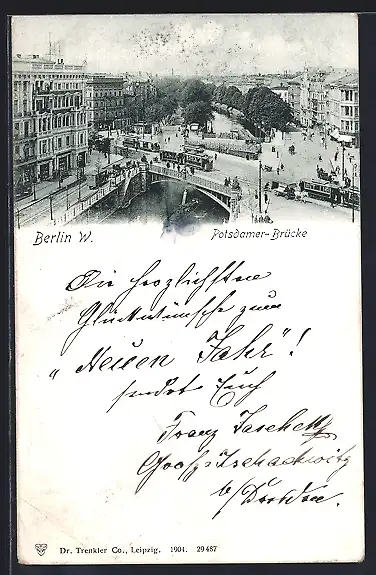 Berlin W. Potsdamer-Brücke
Die herzlichsten
Glückwünsche zum
"Neuen Jahr"!
sendet Euch
Franz
b/ Dresden.
Dr. Trenkler Co., Leipzig. 1904. 29487